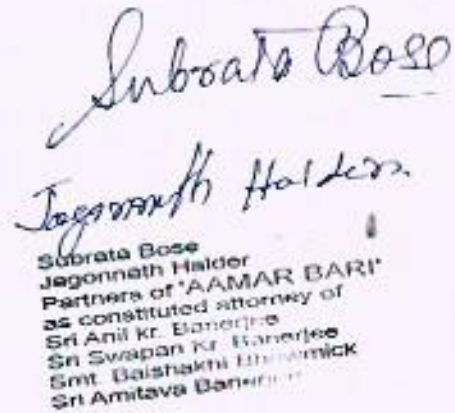 Subrata Bose
Jagannath Halder
Subrata Bose
Jagonnath Halder
Partners of "AAMAR BARI"
as constituted attorney of
Sri Anil Kr. Banerjee
Sri Swapan Kr. Banerjee
Smt. Baishakhi Bhowmick
Sri Amitava Banerjee